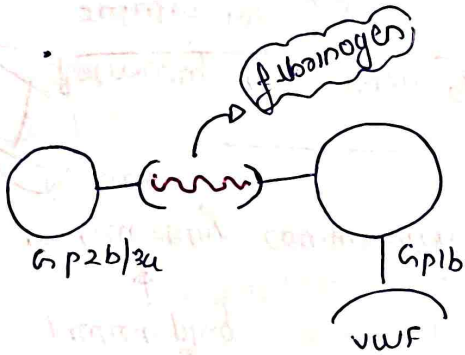 fibrinogen
Gp2b/3a
Gp1b
VWF